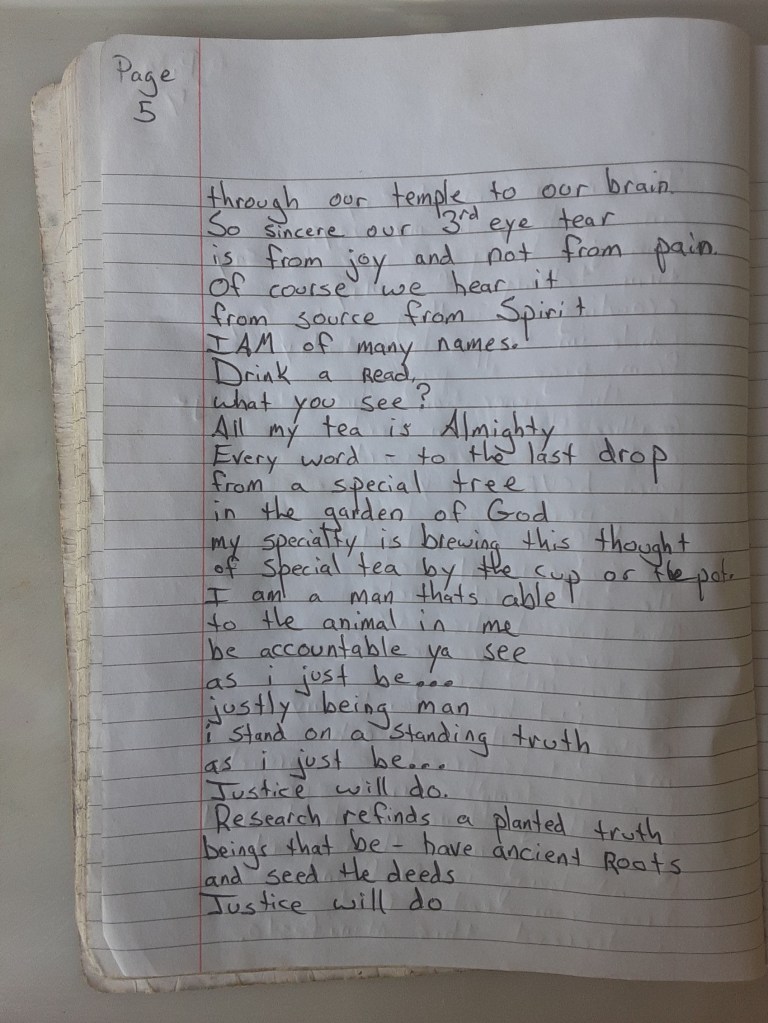 Page
5
through our temple to our brain.
So sincere our 3rd eye tear
is from joy and not from pain.
Of course we hear it
from source from Spirit
I AM of many names.
Drink a Read,
what you see?
All my tea is Almighty
Every word - to the last drop
from a special tree
in the garden of God
my specialty is brewing this thought
of special tea by the cup or the pot.
I am a man thats able
to the animal in me
be accountable ya see
as i just be...
justly being man
i stand on a standing truth
as i just be...
Justice will do.
Research refinds a planted truth
beings that be - have ancient Roots
and seed the deeds
Justice will do